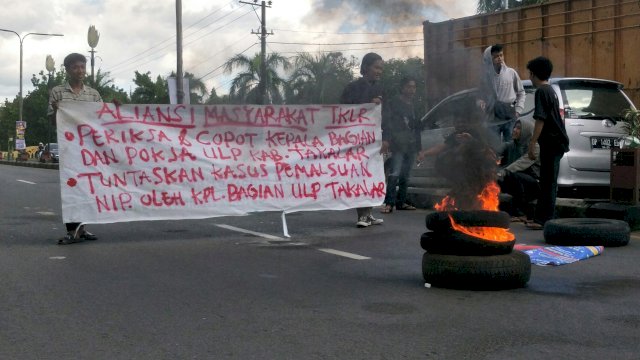 ALIANSI MASYARAKAT TKLR
• PERIKSA & COPOT KEPALA BAGIAN
DAN POKSA ULP KAB. TAKALAR
• TUNTASKAN KASUS PEMALSUAN
NIP. OLEH KPL. BAGIAN ULP TAKALAR